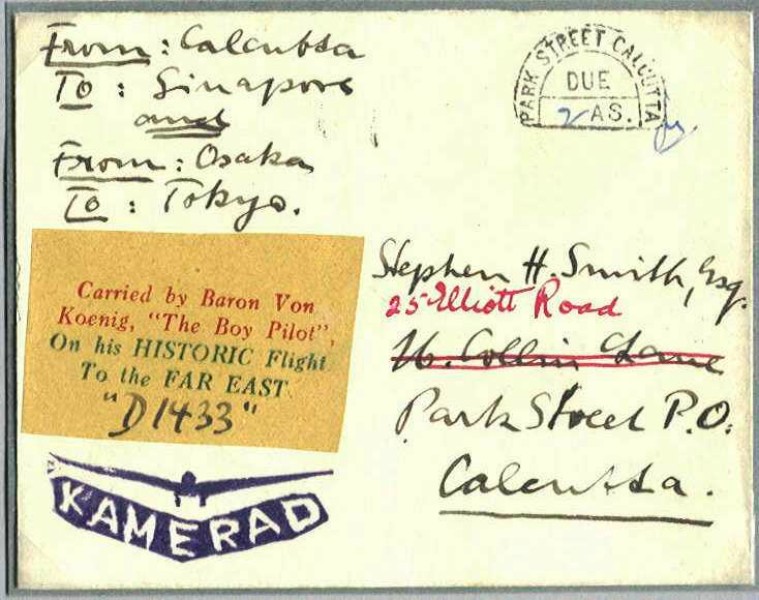 From: Calcutta
To: Singapore
and
From: Osaka
To: Tokyo.
PARK STREET CALCUTTA
DUE
2 AS.
Carried by Baron Von
Koenig, "The Boy Pilot",
On his HISTORIC Flight
To the FAR EAST
"D1433"
KAMERAD
Stephen H. Smith, Esq.
25 Elliott Road
Collin Lane
Park Street P.O.
Calcutta.